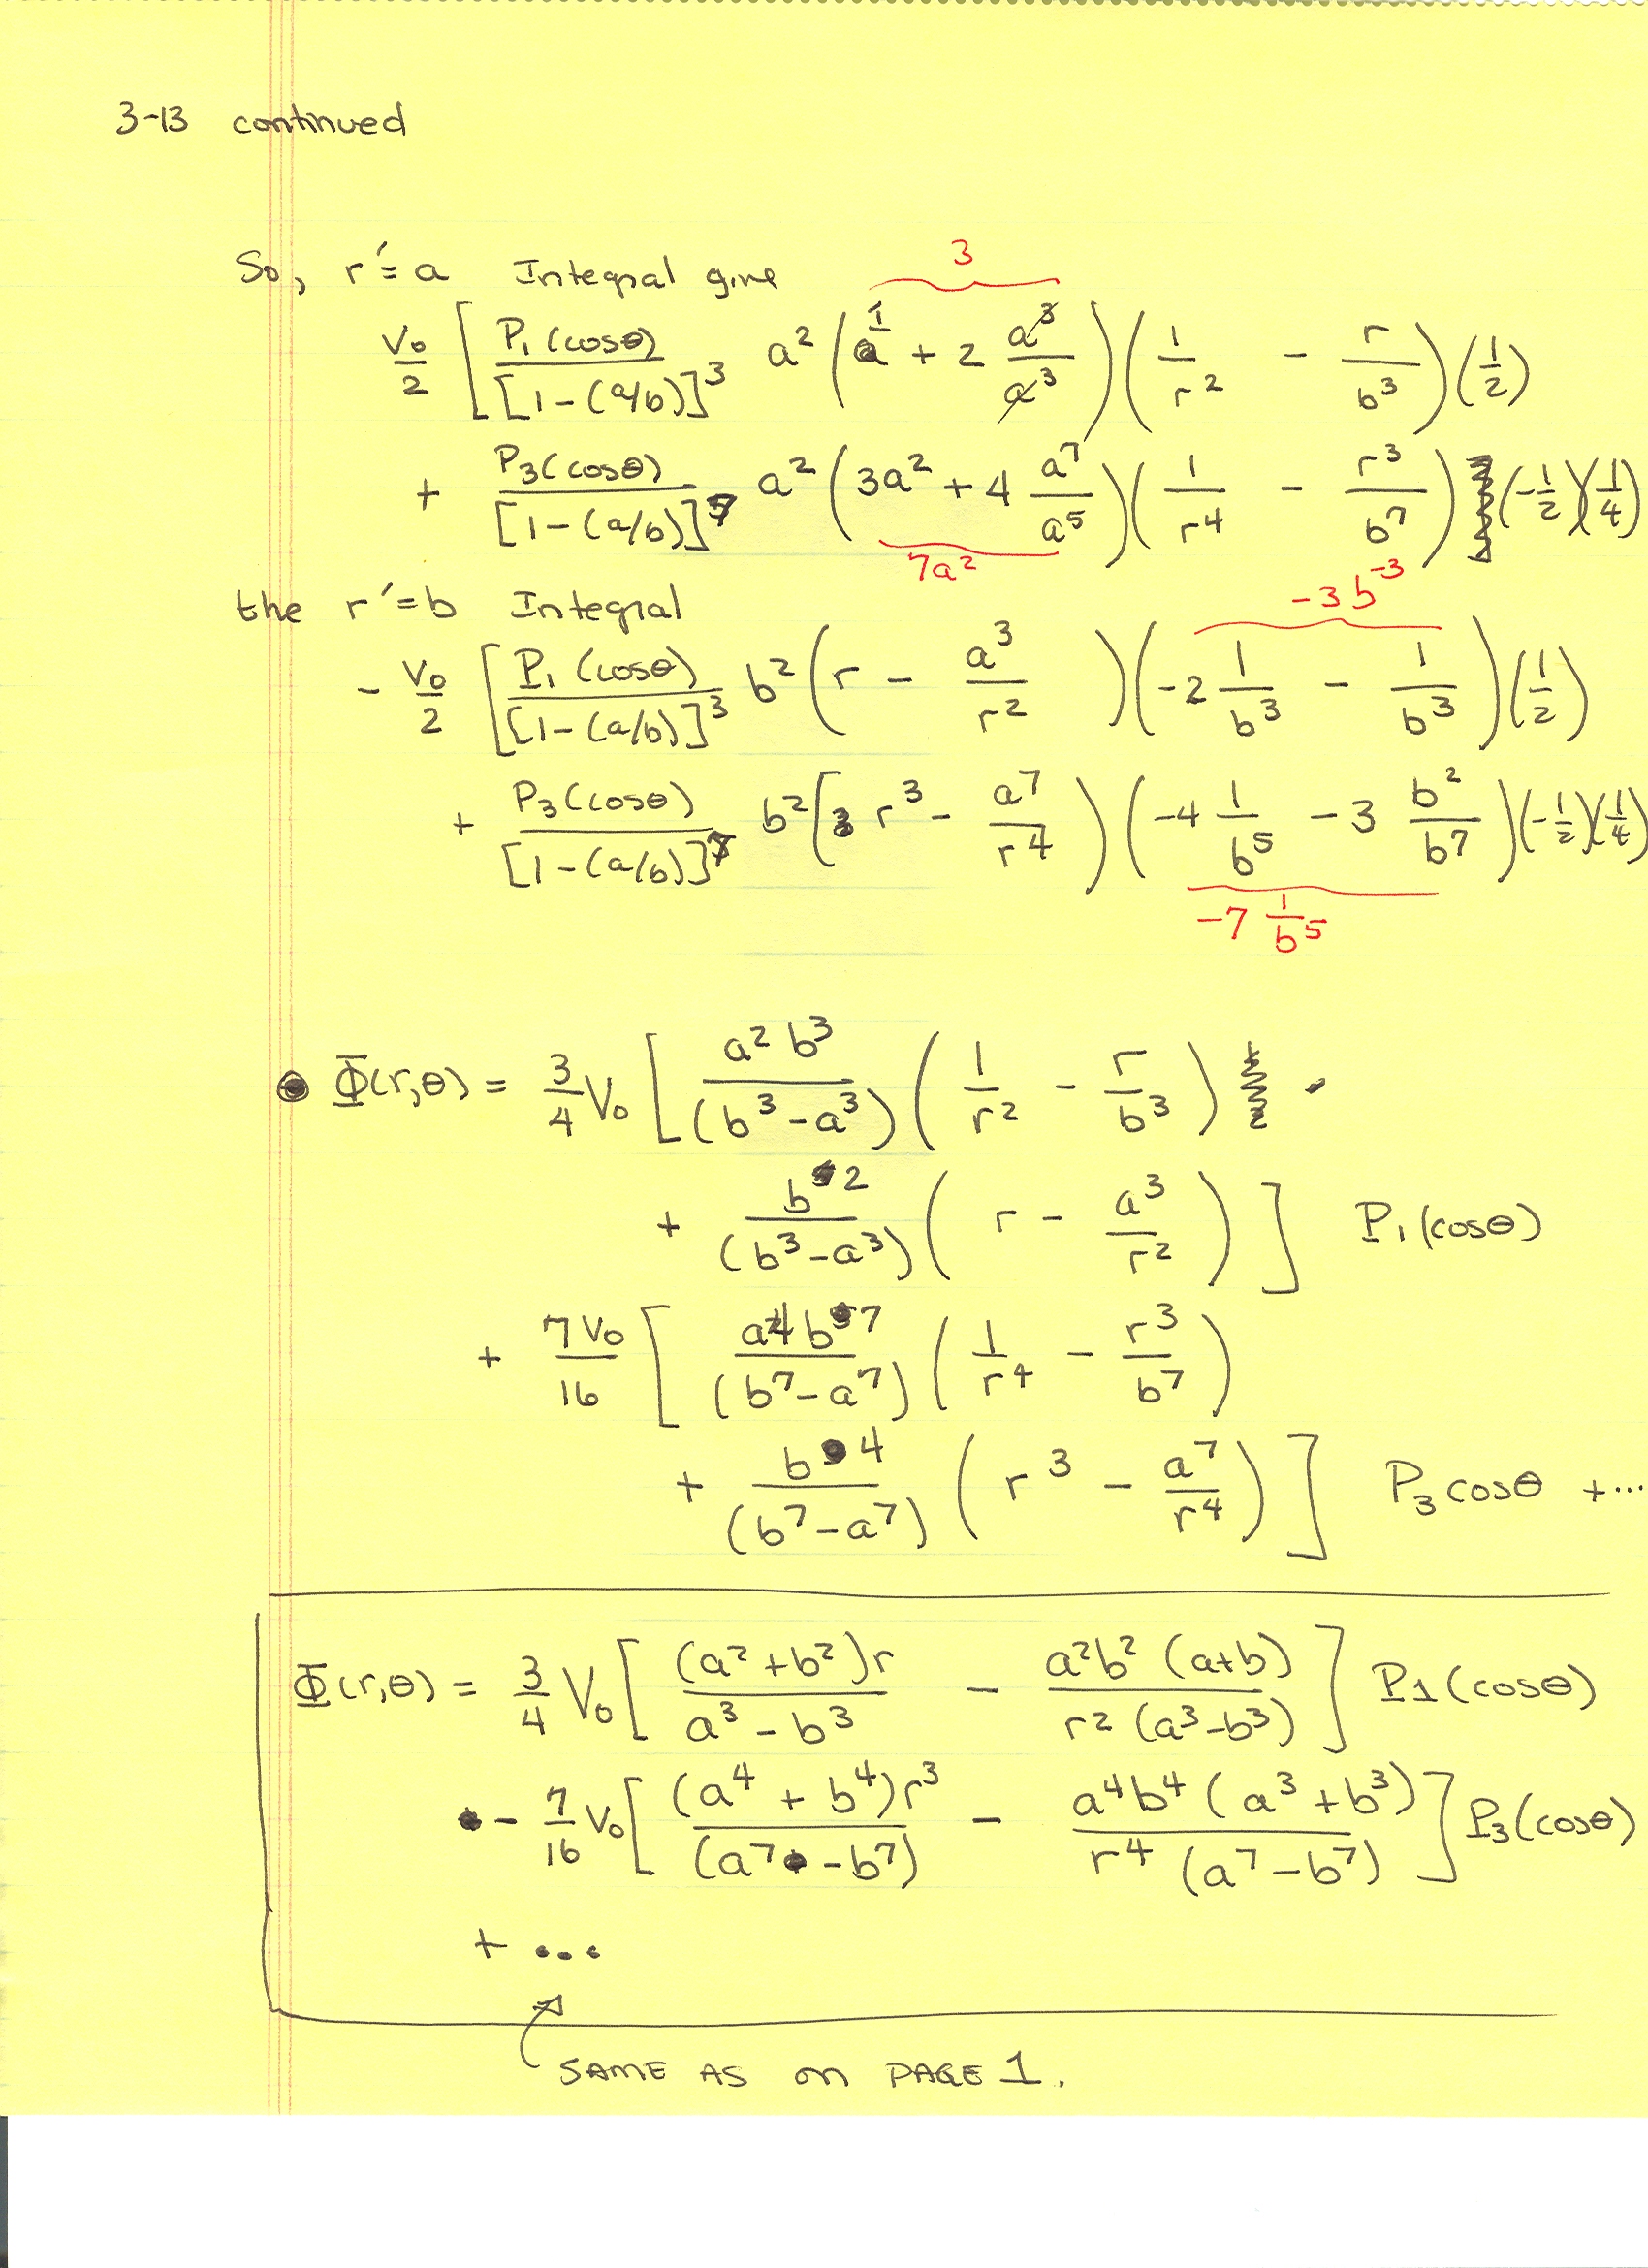 3-13 continued
So, r′ = a Integral give
3
V₀/2 [ P₁(cosθ)/[1-(a/b)]³ a² (1 + 2 a³/a³)(1/r² - r/b³)(1/2)
+ P₃(cosθ)/[1-(a/b)]⁷ a² (3a² + 4 a⁷/a⁵)(1/r⁴ - r³/b⁷)(-1/2)(1/4)
7a²
the r′ = b Integral
-3b⁻³
- V₀/2 [ P₁(cosθ)/[1-(a/b)]³ b² (r - a³/r²)(-2 1/b³ - 1/b³)(1/2)
+ P₃(cosθ)/[1-(a/b)]⁷ b² [r³ - a⁷/r⁴)(-4 1/b⁵ - 3 b²/b⁷)(-1/2)(1/4)
-7 1/b⁵
Φ(r,θ) = 3/4 V₀ [ a²b³/(b³-a³) (1/r² - r/b³)
+ b²/(b³-a³) (r - a³/r²) ] P₁(cosθ)
+ 7V₀/16 [ a⁴b⁷/(b⁷-a⁷) (1/r⁴ - r³/b⁷)
+ b⁴/(b⁷-a⁷) (r³ - a⁷/r⁴) ] P₃cosθ + ...
Φ(r,θ) = 3/4 V₀ [ (a²+b²)r/a³-b³ - a²b²(a+b)/r²(a³-b³) ] P1(cosθ)
- 7/16 V₀ [ (a⁴+b⁴)r³/(a⁷-b⁷) - a⁴b⁴(a³+b³)/r⁴(a⁷-b⁷) ] P₃(cosθ)
+ ...
SAME AS on PAGE 1.